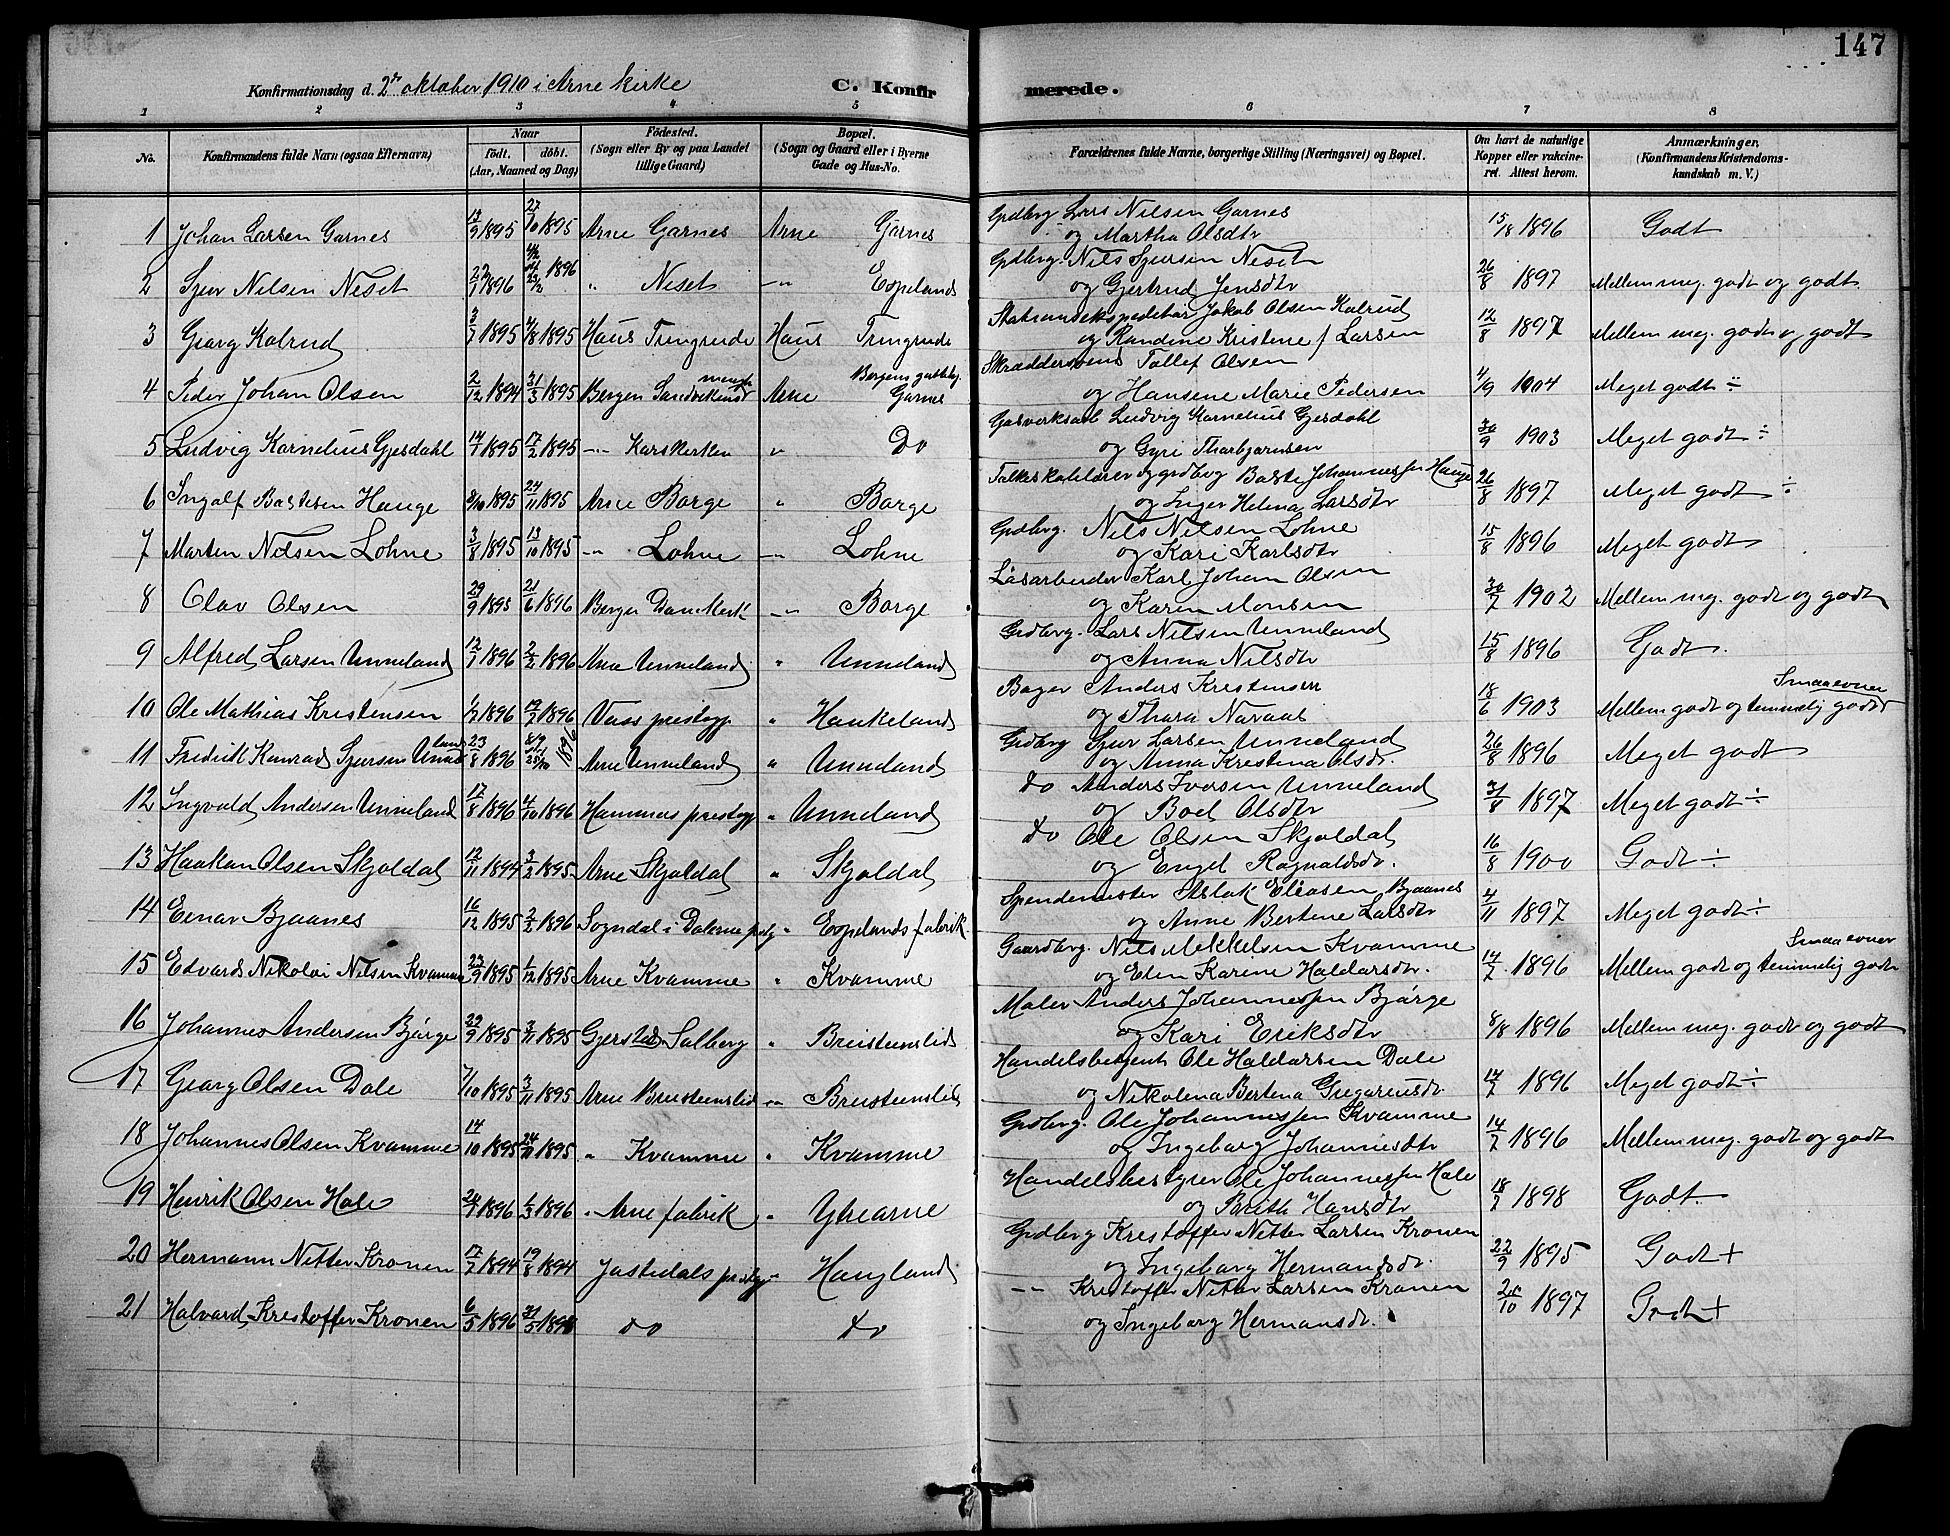 147
Konfirmationsdag d. 2den oktober 1910 i Arne kirke
C. Konfirmerede.
1 2 3 4 5 6 7 8
No.
Konfirmandens fulde Navn (ogsaa Efternavn)
Naar
født. døbt.
(Aar, Maaned og Dag)
Fødested.
(Sogn eller By og paa Landet
tillige Gaard)
Bopæl.
(Sogn og Gaard eller i Byerne
Gade og Hus-No.
Forældrenes fulde Navne, borgerlige Stilling (Næringsvei) og Bopæl.
Om havt de naturlige
Kopper eller vakcine-
ret. Attest herom.
Anmærkninger,
(Konfirmandens Kristendoms-
kundskab m. V.)
1 Johan Larsen Garnes 13/9 1895 27/10 1895 Arne Garnes Arne Garnes Grdbrg Lars Nilsen Garnes 15/8 1896 Godt
og Martha Olsdtr
2 Sjur Nilsen Neset 27/1 1896 23/2 1896 " Neset " Espeland Grdbrg. Nils Sjursen Neset 26/8 1897 Mellem meg. godt og godt
og Gjertrud Jensdtr
3 Georg Kalrud 3/7 1895 4/8 1895 Haus Trengereide Haus Trengereide Stationsekspeditør Jakob Olsen Kalrud 12/8 1897 Mellem meg. godt og godt
og Randine Kristine f Larsen
4 Peder Johan Olsen 2/12 1894 31/3 1895 Bergen Sandvikens mengh Arne Garnes Skræddersvend Tollef Olsen 4/9 1904 Meget godt ÷
og Hansene Marie Pedersen
5 Ludvig Kornelius Gjesdahl 14/1 1895 17/2 1895 " Korskirken " Do Gasverksarb Ludvig Kornelius Gjesdahl 30/9 1903 Meget godt ÷
og Gyri Thorbjørnsen
6 Ingolf Bastesen Hauge 8/10 1895 24/11 1895 Arne Borge " Borge Folkeskolelærer og grdbrg Baste Johannessen Hauge 26/8 1897 Meget godt ÷
og Inger Helena Larsdtr
7 Marten Nilsen Lohne 3/8 1895 13/10 1895 " Lohne " Lohne Grdbrg. Nils Nilsen Lohne 15/8 1896 Meget godt
og Kari Karlsdtr
8 Olav Olsen 29/9 1895 21/6 1896 Bergen Domkirk " Borge Løsarbeider Karl Johan Olsen 30/7 1902 Mellem meg. godt og godt
og Karen Monsen
9 Alfred Larsen Unneland 12/1 1896 2/2 1896 Arne Unneland " Unneland Grdbrg. Lars Nilsen Unneland 15/8 1896 Godt.
og Anna Nilsdtr
10 Ole Mathias Kristensen 1/2 1896 1896 Voss prestegj " Haukeland Bager Anders Kristensen 18/6 1903 Smaa evner Mellem godt og temmelig godt
og Thora
11 Fredrik Konrad Sjursen Unneland 23/8 1896 25/10 1896 Arne Unneland " Unneland Grdbrg Sjur Larsen Unneland 26/8 1896 Meget godt
og Anna Kristina Olsdr.
12 Ingvald Andersen Unneland 17/8 1896 4/10 1896 Hammers prestegj " Unneland do Anders Iversen Unneland 31/8 1897 Meget godt ÷
og Boel Olsdtr
13 Haakon Olsen Skjoldal 12/11 1894 3/2 1895 Arne Skjoldal " Skjoldal do Ole Olsen Skjoldal 16/8 1900 Godt ÷
og Engel Ragnaldsdr.
14 Einar Bjaanes 16/12 1895 2/2 1896 Sogndal i Dalerne prstg " Espelands fabrik. Spindemester Aslak Eliasen Bjaanes 4/11 1897 Meget godt ÷
og Anne Bertine Larsdtr
15 Edvard Nikolai Nilsen Kvamme 23/9 1895 1/12 1895 Arne Kvamme " Kvamme Gaardbrg. Nils Mikkelsen Kvamme 14/7 1896 Smaa evner Mellem godt og temmelig godt
og Elen Karine Haldorsdtr.
16 Johannes Andersen Bjørge 22/9 1895 3/11 1895 Gjerstad Solberg " Breisteinslid Maler Anders Johannessen Bjørge 8/8 1896 Mellem meg. godt og godt
og Kari Eriksdtr
17 Georg Olsen Dale 7/10 1895 3/11 1895 Arne Breisteinslid " Breisteinslid Handelsbetjent Ole Haldorsen Dale 14/7 1896 Meget godt ÷
og Nikolina Bertina Gregoriusdr.
18 Johannes Olsen Kvamme 14/10 1895 24/10 1895 " Kvamme " Kvamme Grdbrg. Ole Johannessen Kvamme 14/7 1896 Mellem meg. godt og godt
og Ingeborg Johannesdtr
19 Henrik Olsen Hole 24/1 1896 1/3 1896 " Arne fabrik " Ytrearne Handelsbestyrer Ole Johannessen Hole 18/7 1898 Godt.
og Brith Hansdtr
20 Hermann Nitter Kronen 17/7 1894 19/8 1894 Jostedals prstgj " Haugland Grdbrg Kristoffer Nitter Larsen Kronen 22/9 1895 Godt +
og Ingeborg Hermansdr.
21 Halvard Kristoffer Kronen 6/5 1896 31/5 1896 do do " Kristoffer Nitter Larsen Kronen 1897 Godt +
og Ingeborg Hermansdr.